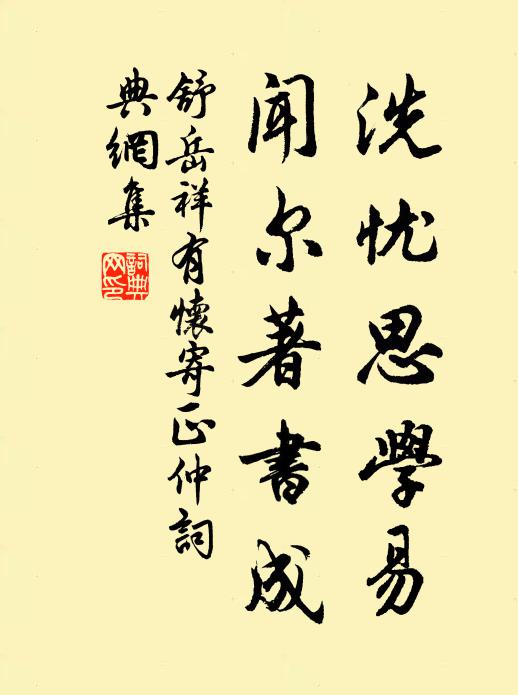 洗忧思學易
聞尔著書成
舒岳祥有懷寄正仲詞
典網集
詞典
网印